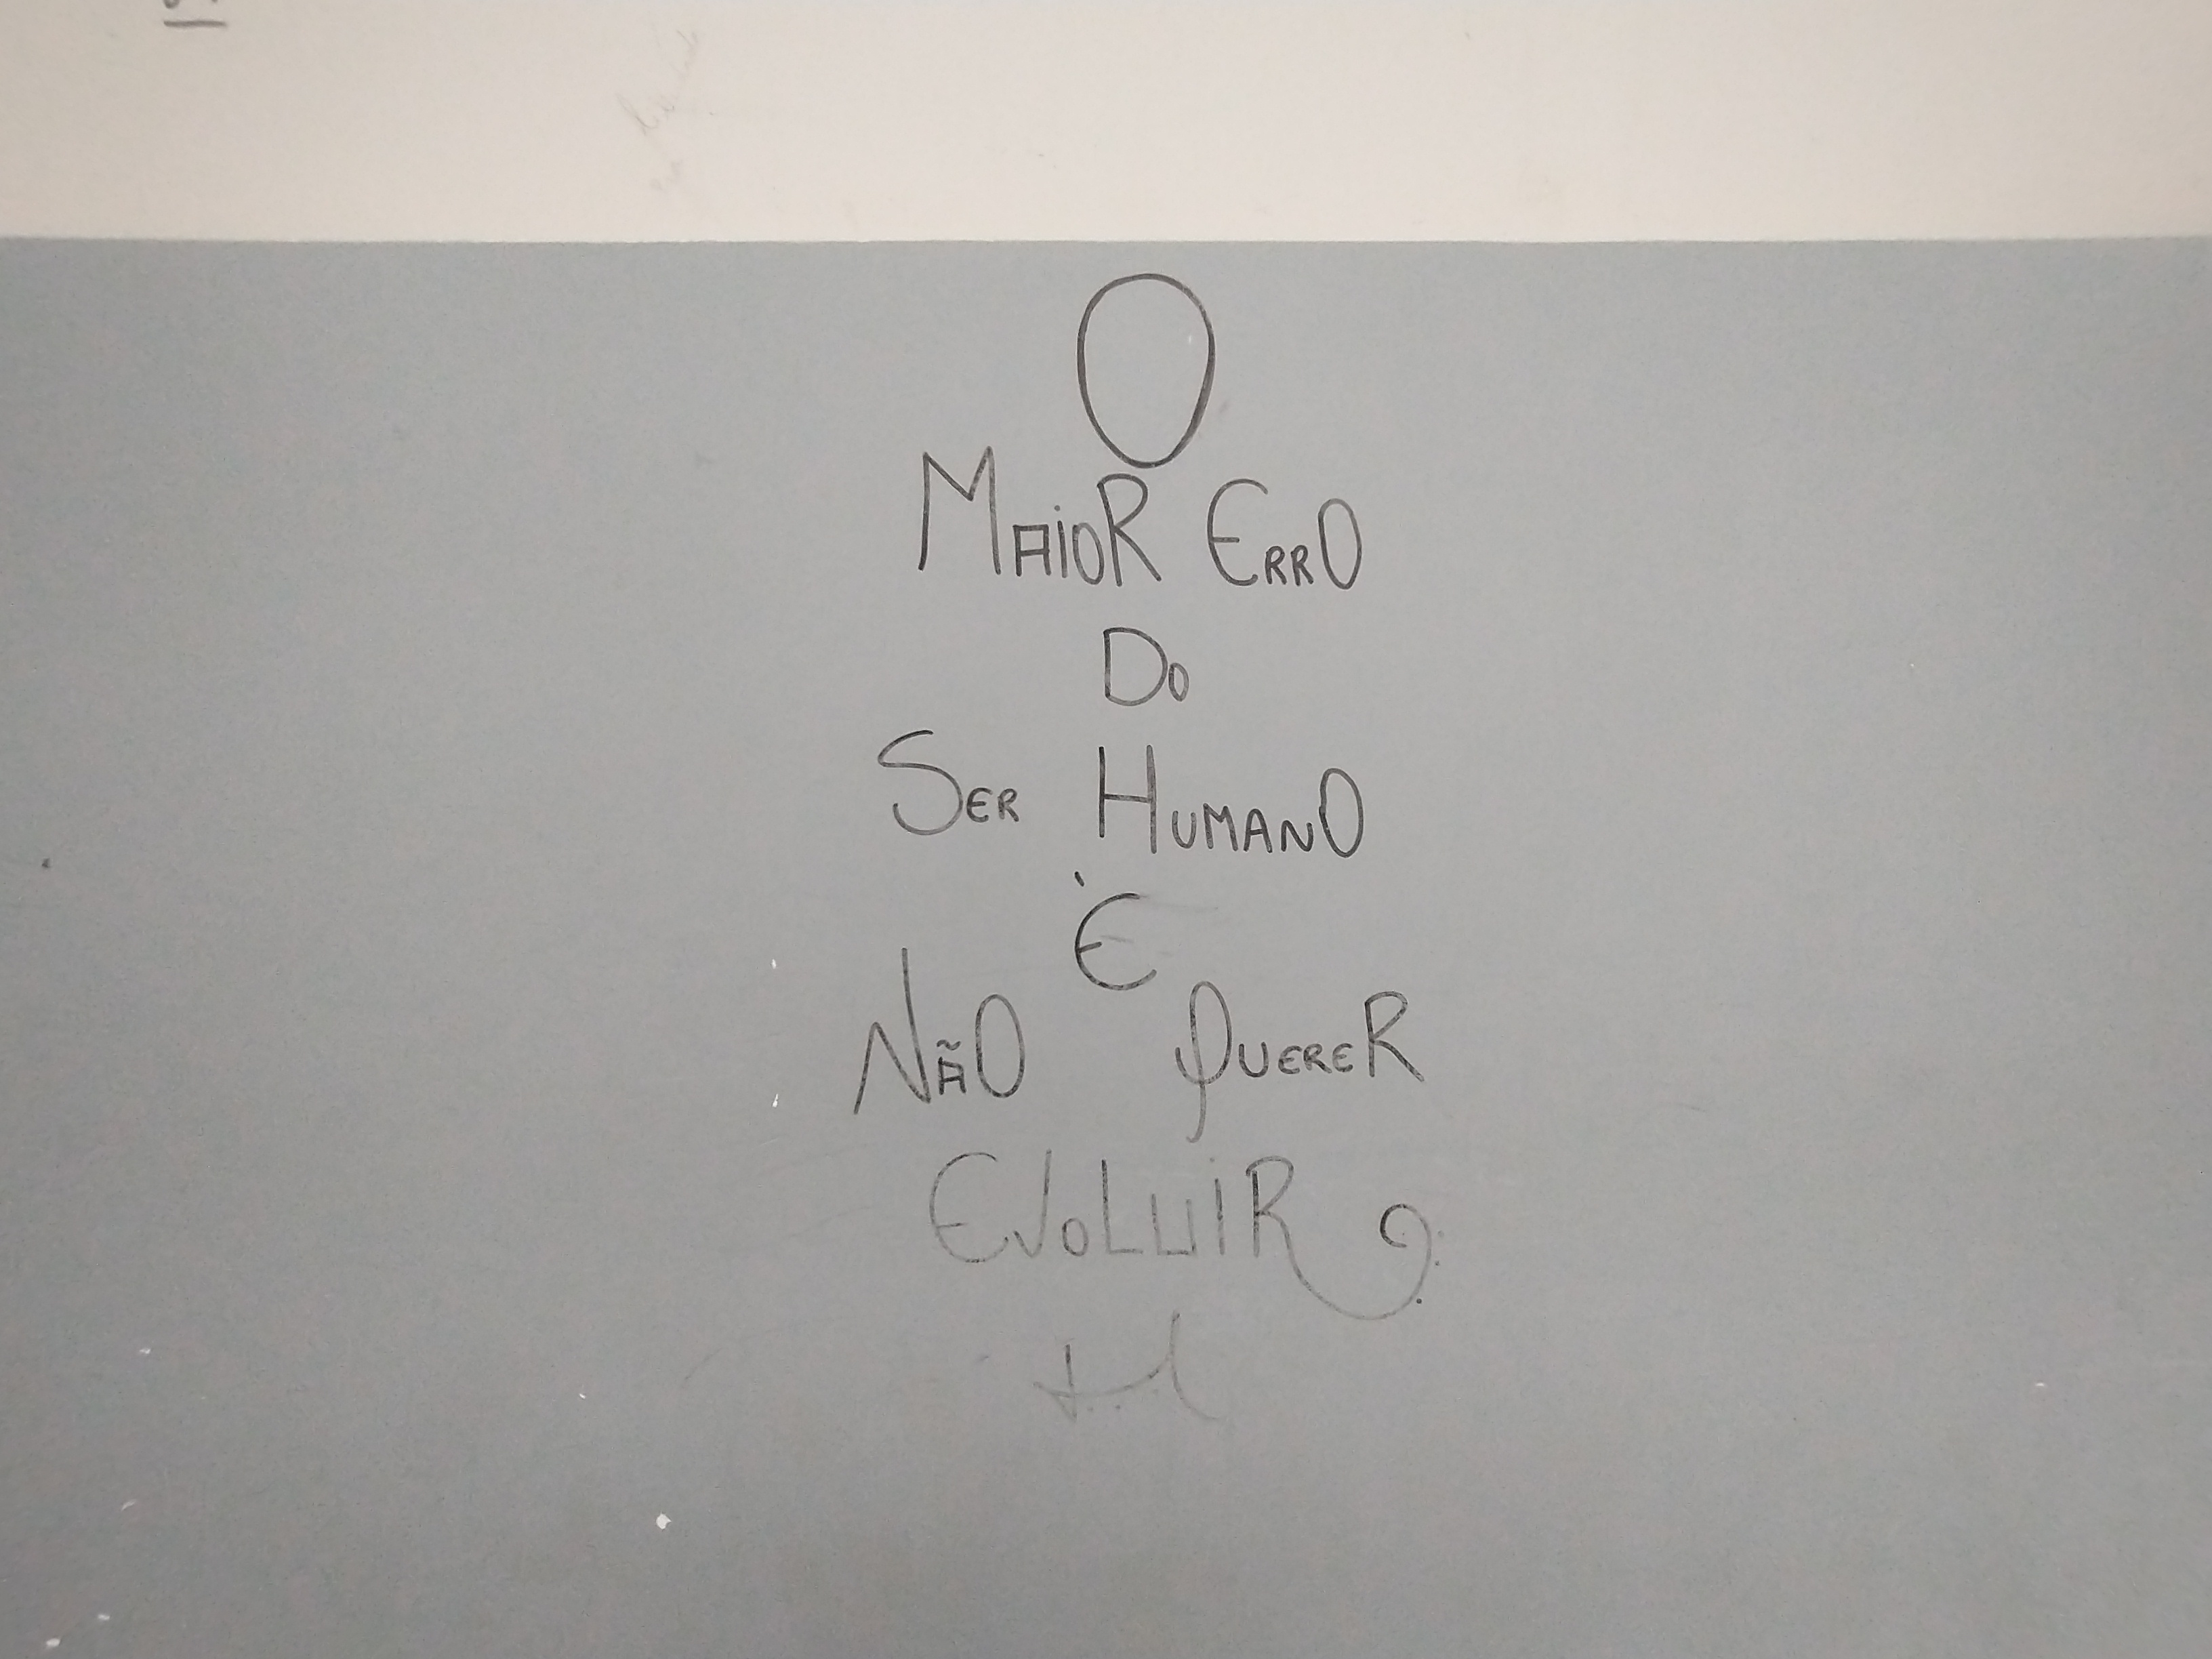 O
MAiOR ERRO
DO
SER HUMANO
È
NÃO QUERER
EVOLUiR